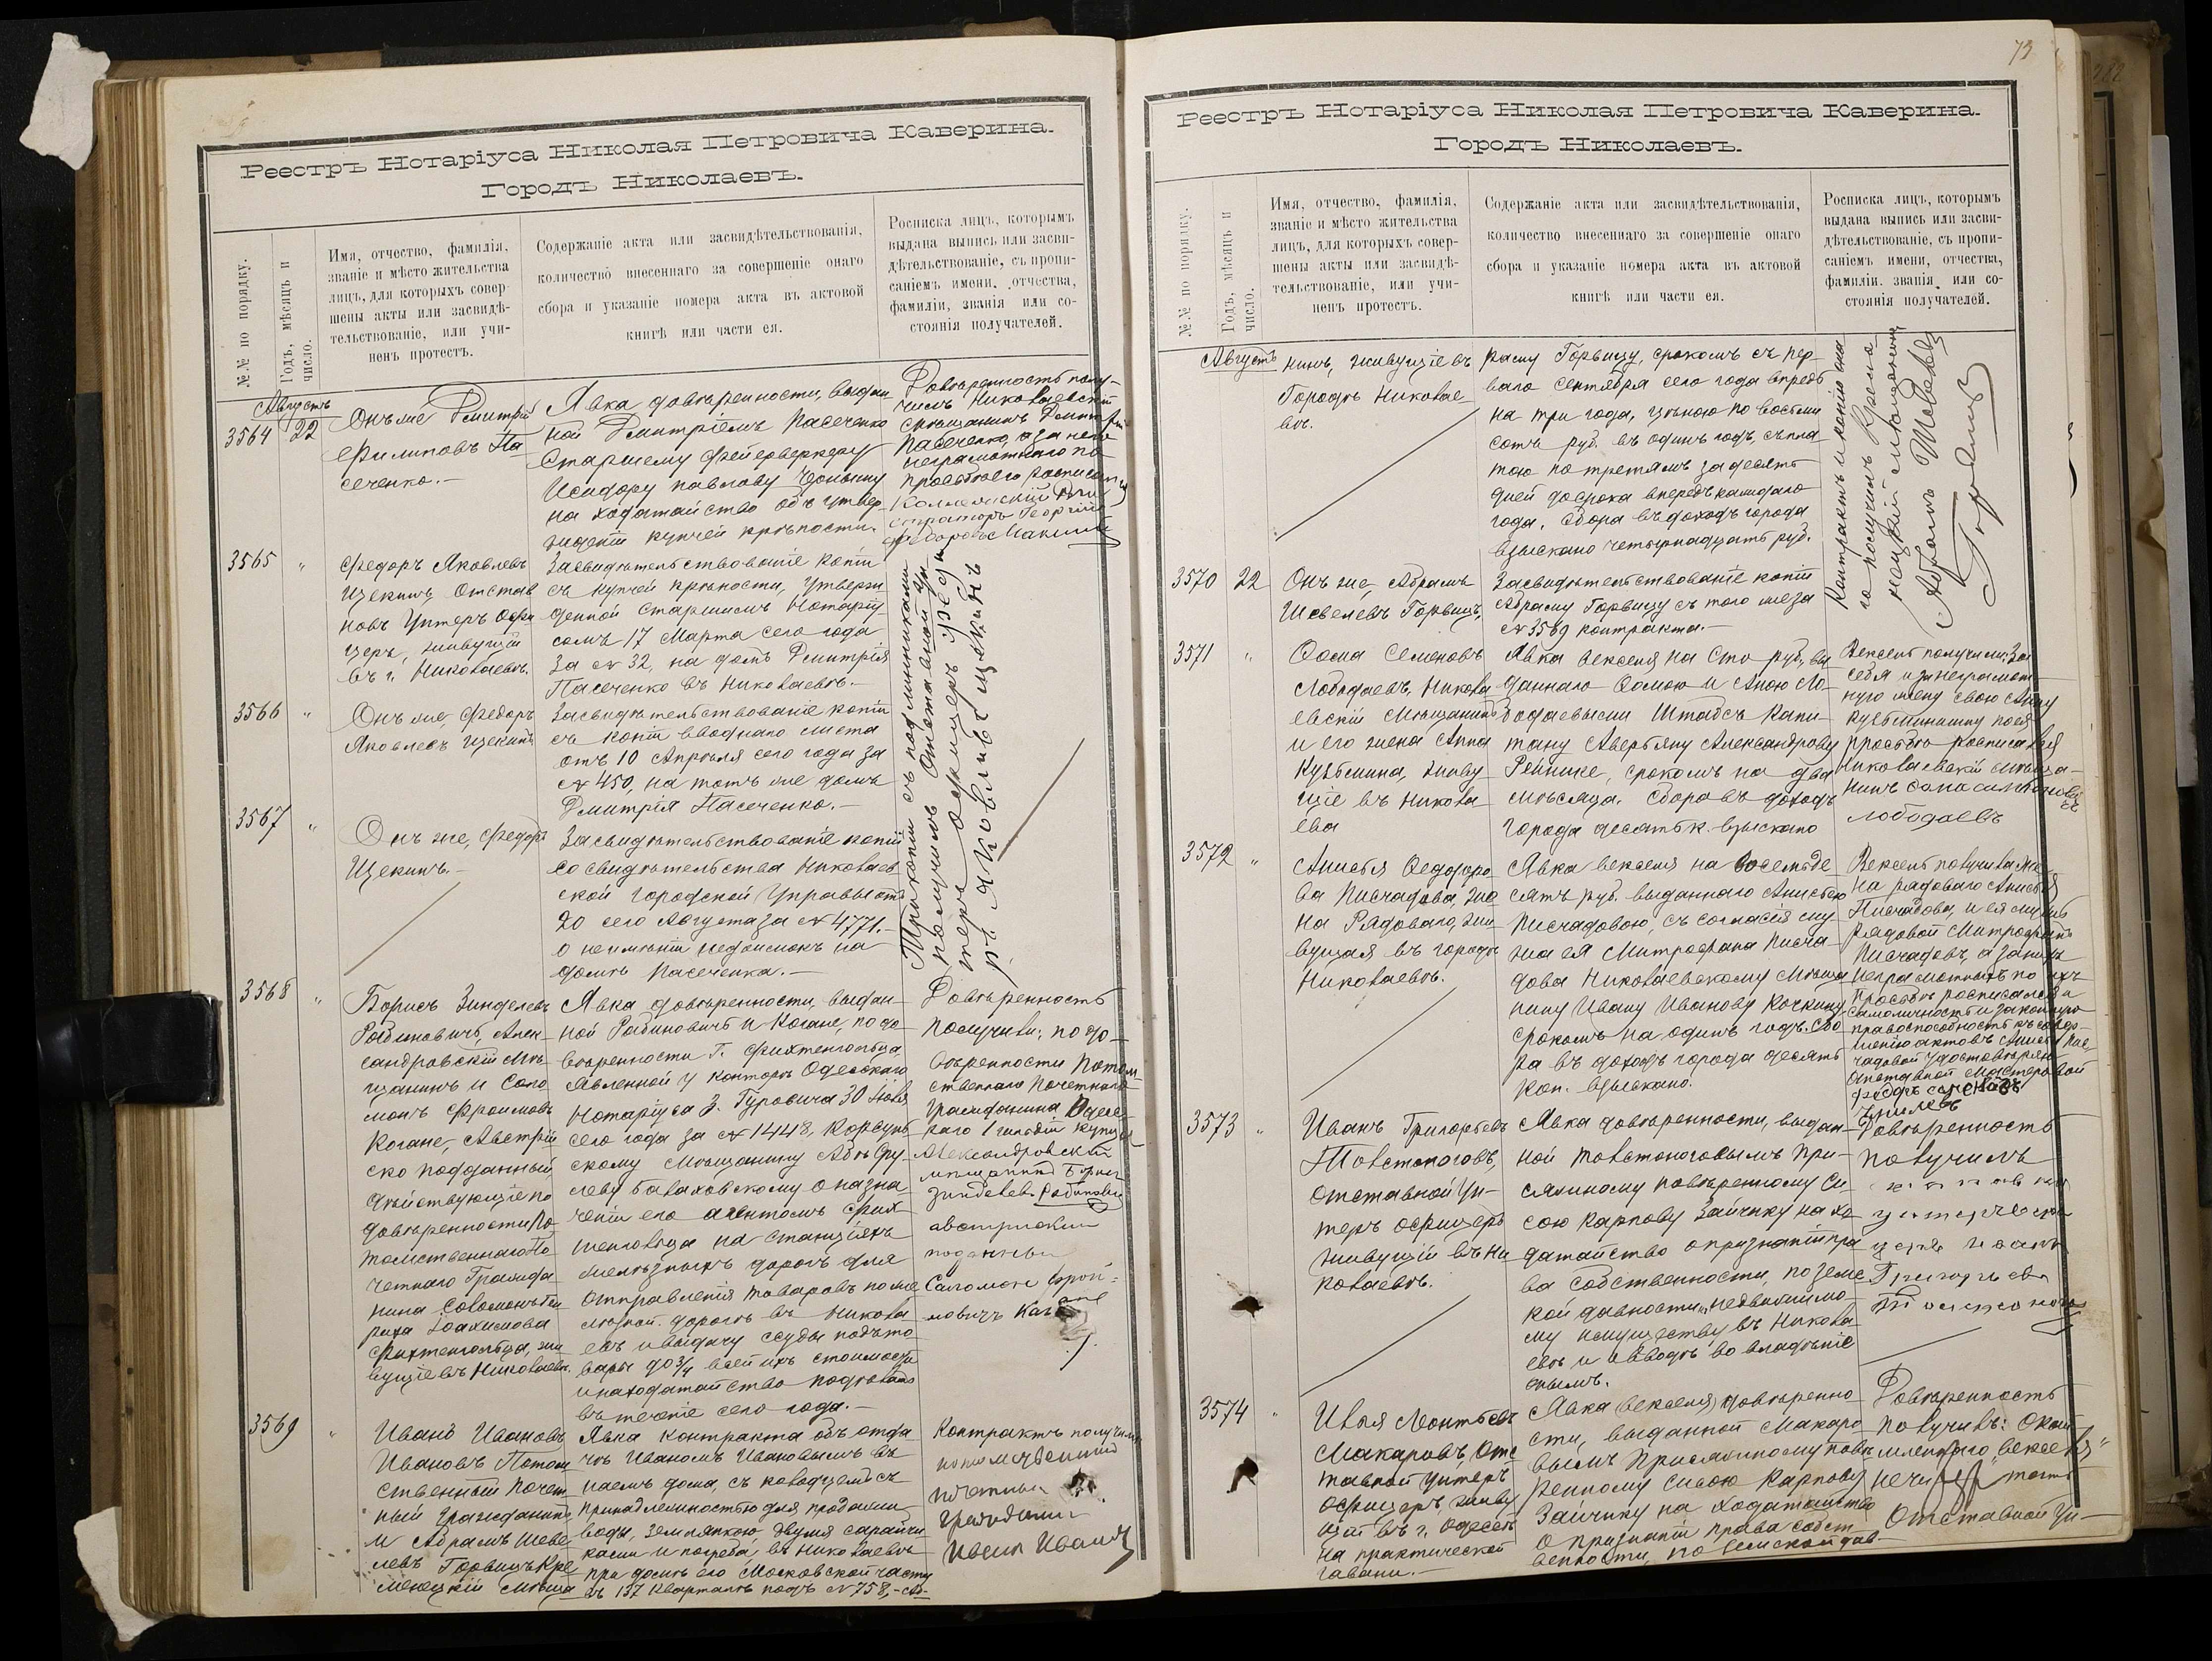 Реестръ Нотаріуса Николая Петровича Каверина.
Городъ Николаевъ.
№№ по порядку.
Годъ, мѣсяцъ и
число.
Имя, отчество, фамилія,
званіе и мѣсто жительства
лицъ, для которыхъ совер-
шены акты или засвидѣ-
тельствованіе, или учи-
ненъ протестъ.
Содержаніе акта или засвидѣтельствованія,
количество внесеннаго за совершеніе онаго
сбора и указаніе номера акта въ актовой
книгѣ или части ея.
Росписка лицъ, которымъ
выдана выпись или засви-
дѣтельствованіе, съ пропи-
саніемъ имени, отчества,
фамиліи, званія или со-
стоянія получателей.
Августъ
3564 22
Онъ же Дмитрій
Филиповъ Па-
сеченко.-
Явка довѣренности, выдан
ной Дмитріемъ Пасеченко
Старшему фейерверкеру
Исидору Павлову
на ходатайство объ утвер-
жденіи купчей крѣпости.
Довѣренность полу-
чилъ Николаевскій
мѣщанинъ Дмитрій
Пасеченко, а за него
неграмотнаго по
просьбѣ его расписался
Коллежскій Реги
страторъ Георгій
3565 "
Федоръ Яковлевъ
Щекинъ Отстав
новъ Унтеръ Офи
церъ, живущій
въ г. Николаевѣ.
Засвидѣтельствованіе копіи
съ купчей крѣпости, утверж
денной Старшимъ Нотаріу
сомъ 17 Марта сего года
за № 32, на домъ Дмитрія
Пасеченко въ Николаевѣ.-
3566 "
Онъ же, Федоръ
Яковлевъ Щекинъ
Засвидѣтельствованіе копіи
съ копіи вводнаго листа
отъ 10 Апрѣля сего года за
№ 450, на тотъ же домъ
Дмитрія Пасеченко.-
3567 "
Онъ же, Федоръ
Щекинъ.-
Засвидѣтельствованіе копіи
со свидѣтельства Николаев
ской Городской Управы отъ
20 сего Августа за № 4771.-
о неимѣніи недоимокъ на
домѣ Пасеченка.-
Три копіи съ подлинниками
получилъ Отставной Ун
теръ офицеръ Федо
ръ Яковлевъ Щекинъ
3568 "
Борисъ Зинделевъ
Рабиновичъ, Алек-
сандровскій Мѣ-
щанинъ и Соло
монъ Фроимовъ
Когане, Австрій
ско подданный,
дѣйствующіе по
довѣренности По-
томственнаго По
четнаго Гражда
нина Соломона Ген
риха Іоахимова
Фихтенгольца, жи
вущіе въ Николаевѣ.
Явка довѣренности, выдан-
ной Рабиновичъ и Когане, по до-
вѣренности Г. Фихтенгольца
явленной у конторѣ Одесскаго
Нотаріуса З. Гуровича 30 Іюля
сего года за № 1448, Корсунь
скому Мѣщанину Абѣ Сру
леву Балаховскому о назна-
ченіи его агентомъ Фих-
тенгольца на станціяхъ
желѣзныхъ дорогъ для
отправленія товаровъ по же
лѣзной дорогѣ въ Никола
евъ и выдачу ссуды подъ то
вары до 3/4 всей ихъ стоимости
и на ходатайство
въ теченіе сего года.-
Довѣренность
получили: по до-
вѣренности Потом-
ственнаго Почетнаго
Гражданина Одесс
каго 1 гильдіи купца
Александровскій
мѣщанинъ Борисъ
Зинделевъ Рабиновичъ
австрійскій
поданный
Саломон Фрой-
мовичъ Кагане
3569 "
Иванъ Ивановъ
Ивановъ Потом
ственный Почет
ный Гражданинъ
и Абрамъ Шеве
левъ Горвицъ Кре
менецкій Мѣща
Явка контракта объ отда
чѣ Иваномъ Ивановымъ въ
наемъ дома, съ колодцемъ съ
принадлежностью для продажи
воды, землянкою, двумя сарайчи
ками и погреба, въ Николаевѣ
при домѣ его Московской части
въ 137 кварталѣ подъ № 758,- Аб-
Контрактъ получилъ
потомственный
почетный
гражданинъ
Иванъ Ивановъ
73
Реестръ Нотаріуса Николая Петровича Каверина.
Городъ Николаевъ.
№№ по порядку.
Годъ, мѣсяцъ и
число.
Имя, отчество, фамилія,
званіе и мѣсто жительства
лицъ, для которыхъ совер-
шены акты или засвидѣ-
тельствованіе, или учи-
ненъ протестъ.
Содержаніе акта или засвидѣтельствованія,
количество внесеннаго за совершеніе онаго
сбора и указаніе номера акта въ актовой
книгѣ или части ея.
Росписка лицъ, которымъ
выдана выпись или засви-
дѣтельствованіе, съ пропи-
саніемъ имени, отчества,
фамиліи, званія или со-
стоянія получателей.
Августъ
нинъ, живущіе въ
Городѣ Николае
вѣ.
раму Горвицу, срокомъ съ пер
ваго Сентября сего года впредь
на три года, цѣною по восьми
сотъ руб. въ одинъ годъ, съ пла
тою по третямъ за десять
дней до срока впередъ каждаго
года. Сбора въ доходъ города
взыскано четырнадцать руб.
Контрактъ и копію она
го получилъ Креме-
нецкій мѣщанинъ
Абрамъ Шевелевъ
Горвицъ
3570 22
Онъ же, Абрамъ
Шевелевъ Горвицъ.
Засвидѣтельствованіе копіи
Абраму Горвицу съ того же за
№ 3569 контракта.-
3571 "
Ѳома Семеновъ
Лободаевъ, Никола
евскій Мѣщанинъ
и его жена Анна
Кузьмина, живу
щіе въ Никола
ева
Явка векселя на Сто руб., вы
даннаго Ѳомою и Анною Ло-
бодаевыми Штабсъ Капи-
тану Аверьяну Александрову
Рейнике, срокомъ на два
мѣсяца. Сбора въ доходъ
города десять к. взыскано
Вексель получили: За
себя и за неграмот-
ную жену свою Анну
Кузьминишну по ея
просьбѣ росписался
Николаевскій мѣща-
нинъ
лободаевъ
3572 "
Анисья Ѳедоро
ва Писчадова, же
на Рядоваго, жи
вущая въ городѣ
Николаевѣ.
Явка векселя на восемьде
сятъ руб. выданнаго Анисьею
Писчадовою, съ согласія му
жа ея Митрофана Писча-
дова Николаевскому Мѣща
нину Ивану Иванову Кочкину
срокомъ на одинъ годъ. Сбо
ра въ доходъ города десять
коп. взыскано.
Вексель получила же-
на рядоваго Анисья
Писчадова, и ея мужъ
рядовой Митрофанъ
Писчадовъ, а за нихъ
неграмотныхъ по ихъ
просьбѣ росписался и
самоличность и законную
правоспособность къ совер-
шенію актовъ Анисьи Пис
чадовой удостовѣряю
Отставной Мастеровой
3573 "
Иванъ Григорьевъ
Товстоноговъ,
отставной Ун-
теръ офицеръ
живущій въ Ни
колаевѣ.
Явка довѣренности, выдан-
ной Товстоноговымъ При-
сяжному повѣренному Си-
сою Карпову Зайчику на хо
датайство о признаніи пра
ва собственности, по земс
кой давности, недвижимо-
му имуществу въ Никола
евѣ и о вводѣ во владѣніе
онымъ.
Довѣренность
получилъ
Григорьевъ
3574 "
Илья Леонтьевъ
Макаровъ, Отс
тавной Унтеръ
офицеръ, живу
щій въ г. Одессѣ
на практической
гавани.-
Явка (векселя) довѣренно
сти, выданной Макаро
вымъ Присяжному повѣ
ренному Сисою Карпову
Зайчику на ходатайство
о признаніи права собст-
венности, по земской дав-
Довѣренность
получилъ:
векселя"
нечитать
Отставной Ун-